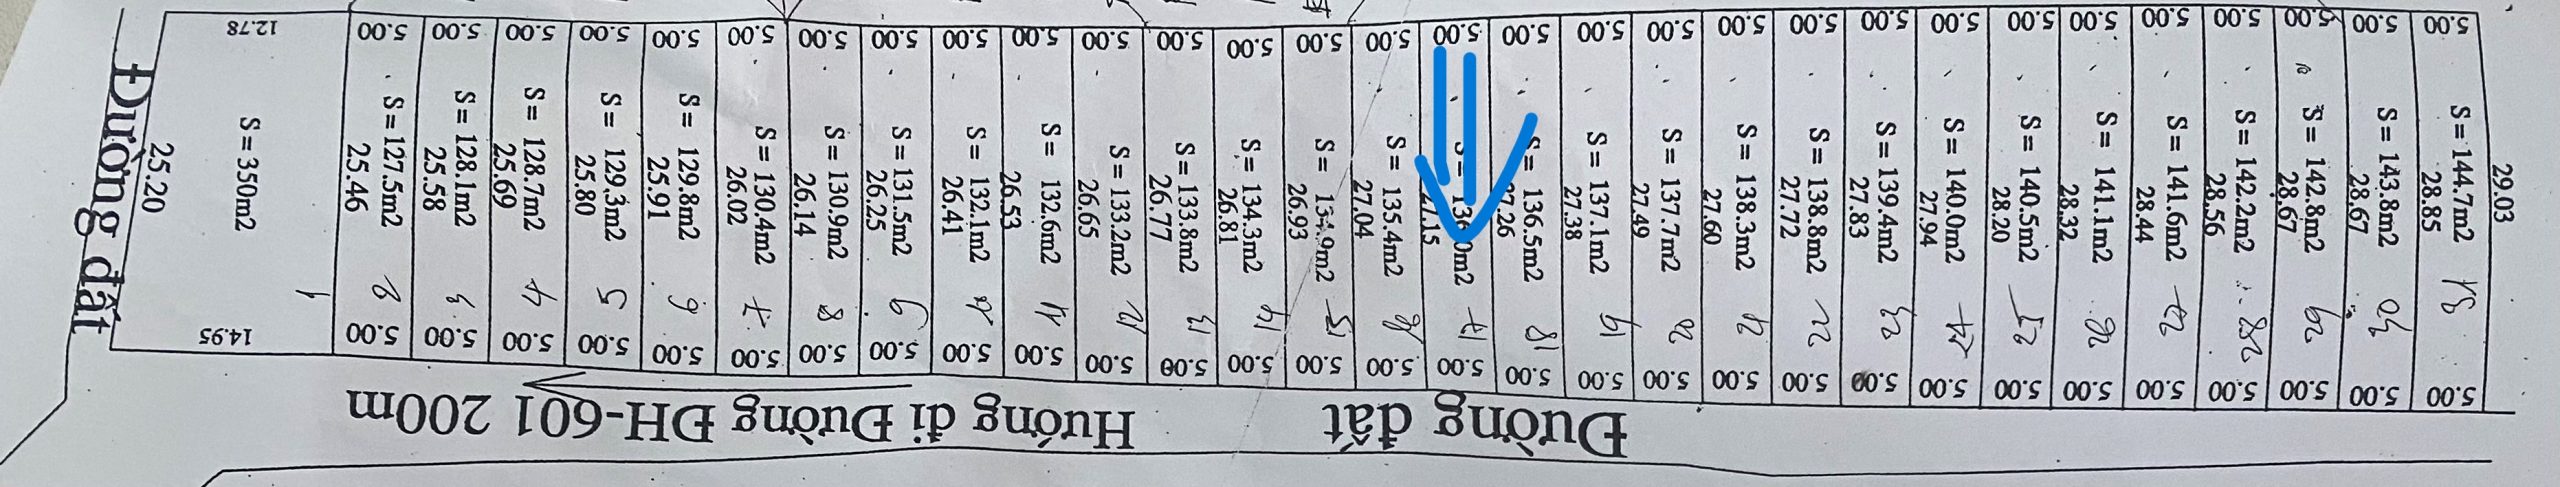 12.78
S = 350m2
25.20
14.95
1
5.00
S = 127.5m2
25.46
2
5.00
5.00
S = 128.1m2
25.58
3
5.00
5.00
S = 128.7m2
25.69
4
5.00
5.00
S = 129.3m2
25.80
5
5.00
5.00
S = 129.8m2
25.91
6
5.00
5.00
S = 130.4m2
26.02
7
5.00
5.00
S = 130.9m2
26.14
8
5.00
5.00
S = 131.5m2
26.25
9
5.00
5.00
S = 132.1m2
26.41
5.00
5.00
S = 132.6m2
26.53
11
5.00
5.00
S = 133.2m2
26.65
12
5.00
5.00
S = 133.8m2
26.77
13
5.00
5.00
S = 134.3m2
26.81
14
5.00
5.00
S = 134.9m2
26.93
15
5.00
5.00
S = 135.4m2
27.04
16
5.00
5.00
S = 136.0m2
27.15
17
5.00
5.00
S = 136.5m2
27.26
18
5.00
5.00
S = 137.1m2
27.38
19
5.00
5.00
S = 137.7m2
27.49
20
5.00
5.00
S = 138.3m2
27.60
21
5.00
5.00
S = 138.8m2
27.72
22
5.00
5.00
S = 139.4m2
27.83
23
5.00
5.00
S = 140.0m2
27.94
24
5.00
5.00
S = 140.5m2
28.20
25
5.00
5.00
S = 141.1m2
28.32
26
5.00
5.00
S = 141.6m2
28.44
27
5.00
5.00
S = 142.2m2
28.56
28
5.00
5.00
S = 142.8m2
28.67
29
5.00
5.00
S = 143.8m2
28.67
30
5.00
5.00
S = 144.7m2
28.85
31
5.00
29.03
Đường đất
Đường đất
Hướng đi Đường ĐH-601 200m